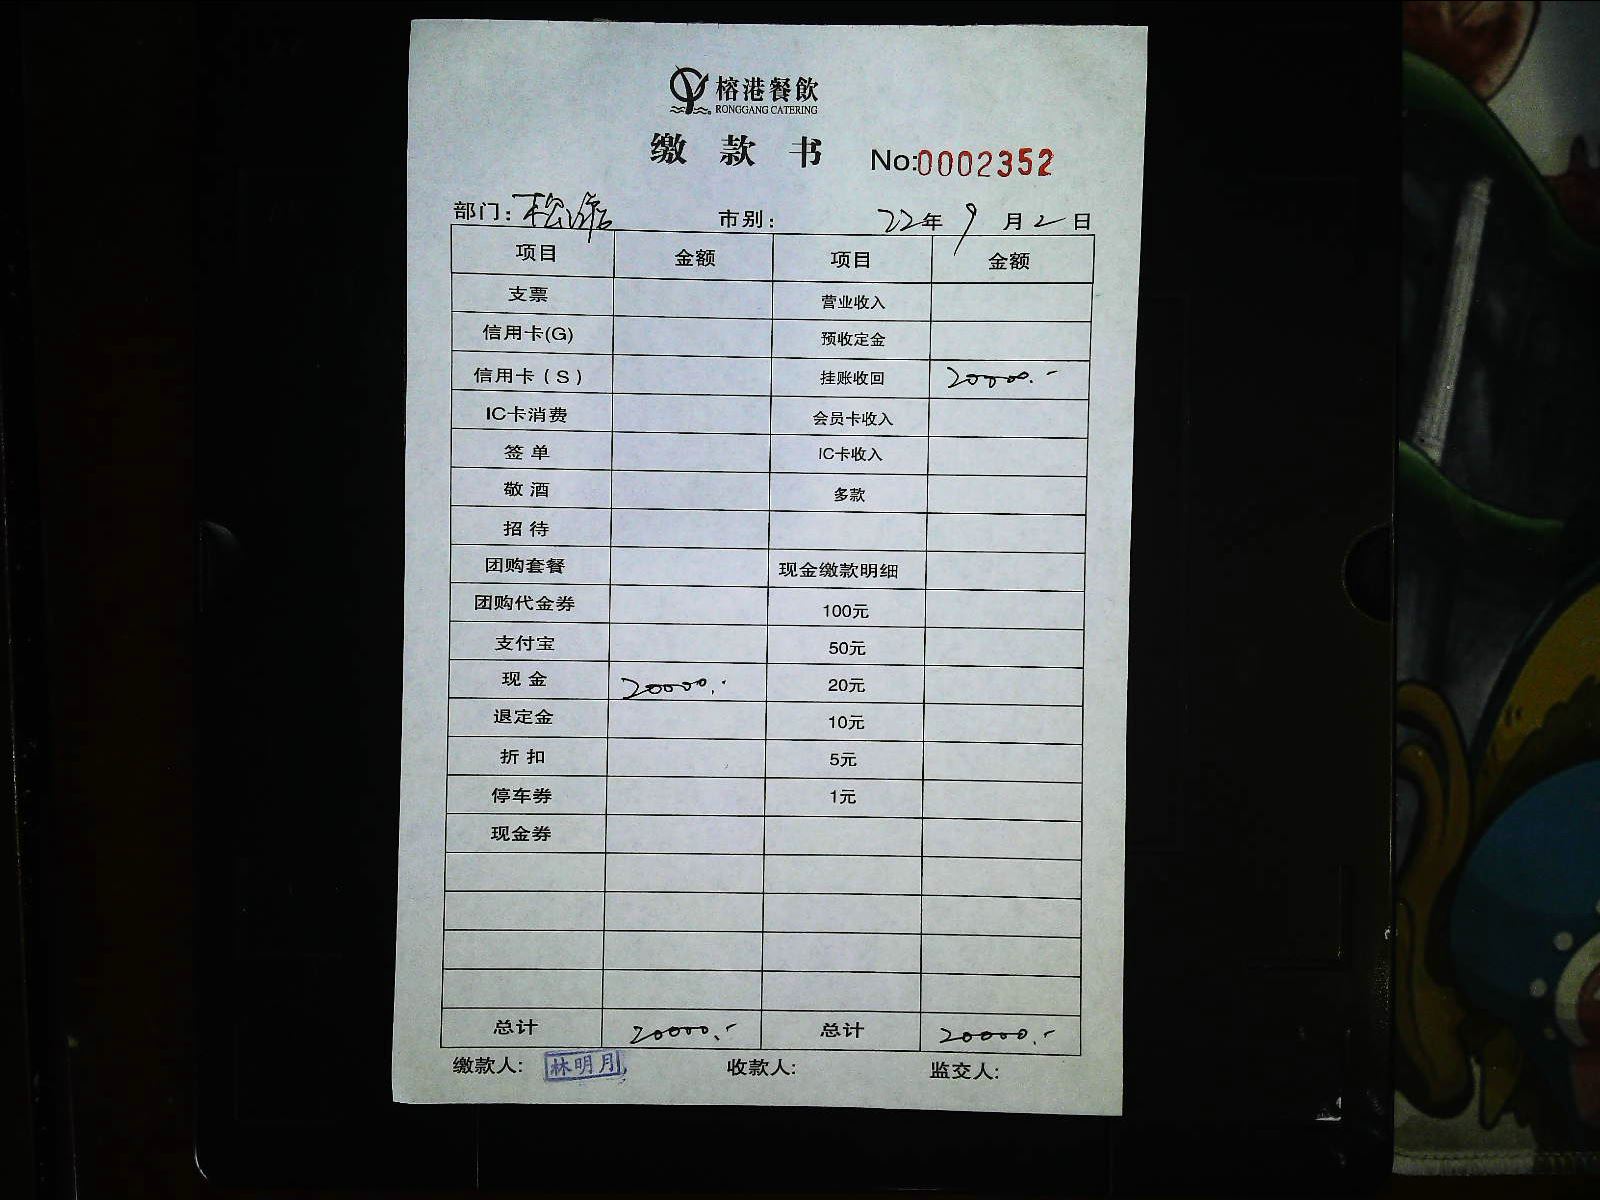 榕港餐飲
RONGGANG CATERING
缴款书 No:0002352
部门: 市别: 22年9月2日
项目 金额 项目 金额
支票 营业收入
信用卡(G) 预收定金
信用卡(S) 挂账收回 20000.-
IC卡消费 会员卡收入
签单 IC卡收入
敬酒 多款
招待
团购套餐 现金缴款明细
团购代金券 100元
支付宝 50元
现金 20000.- 20元
退定金 10元
折扣 5元
停车券 1元
现金券
总计 20000.- 总计 20000.-
缴款人: 林明月 收款人: 监交人: